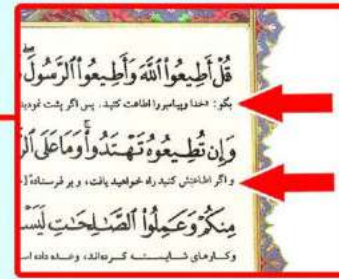 قُلْ أَطِيعُوا۟ ٱللَّهَ وَأَطِيعُوا۟ ٱلرَّسُولَ ۖ
بگو: «خدا و پیامبر را اطاعت کنید. پس اگر پشت نمودید
وَإِن تُطِيعُوهُ تَهْتَدُوا۟ ۚ وَمَا عَلَى
و اگر اطاعتش کنید راه خواهید یافت، و بر فرستادۀ
مِنكُمْ وَعَمِلُوا۟ ٱلصَّـٰلِحَـٰتِ
و کارهای شایسته کرده‌اند، وعده داده